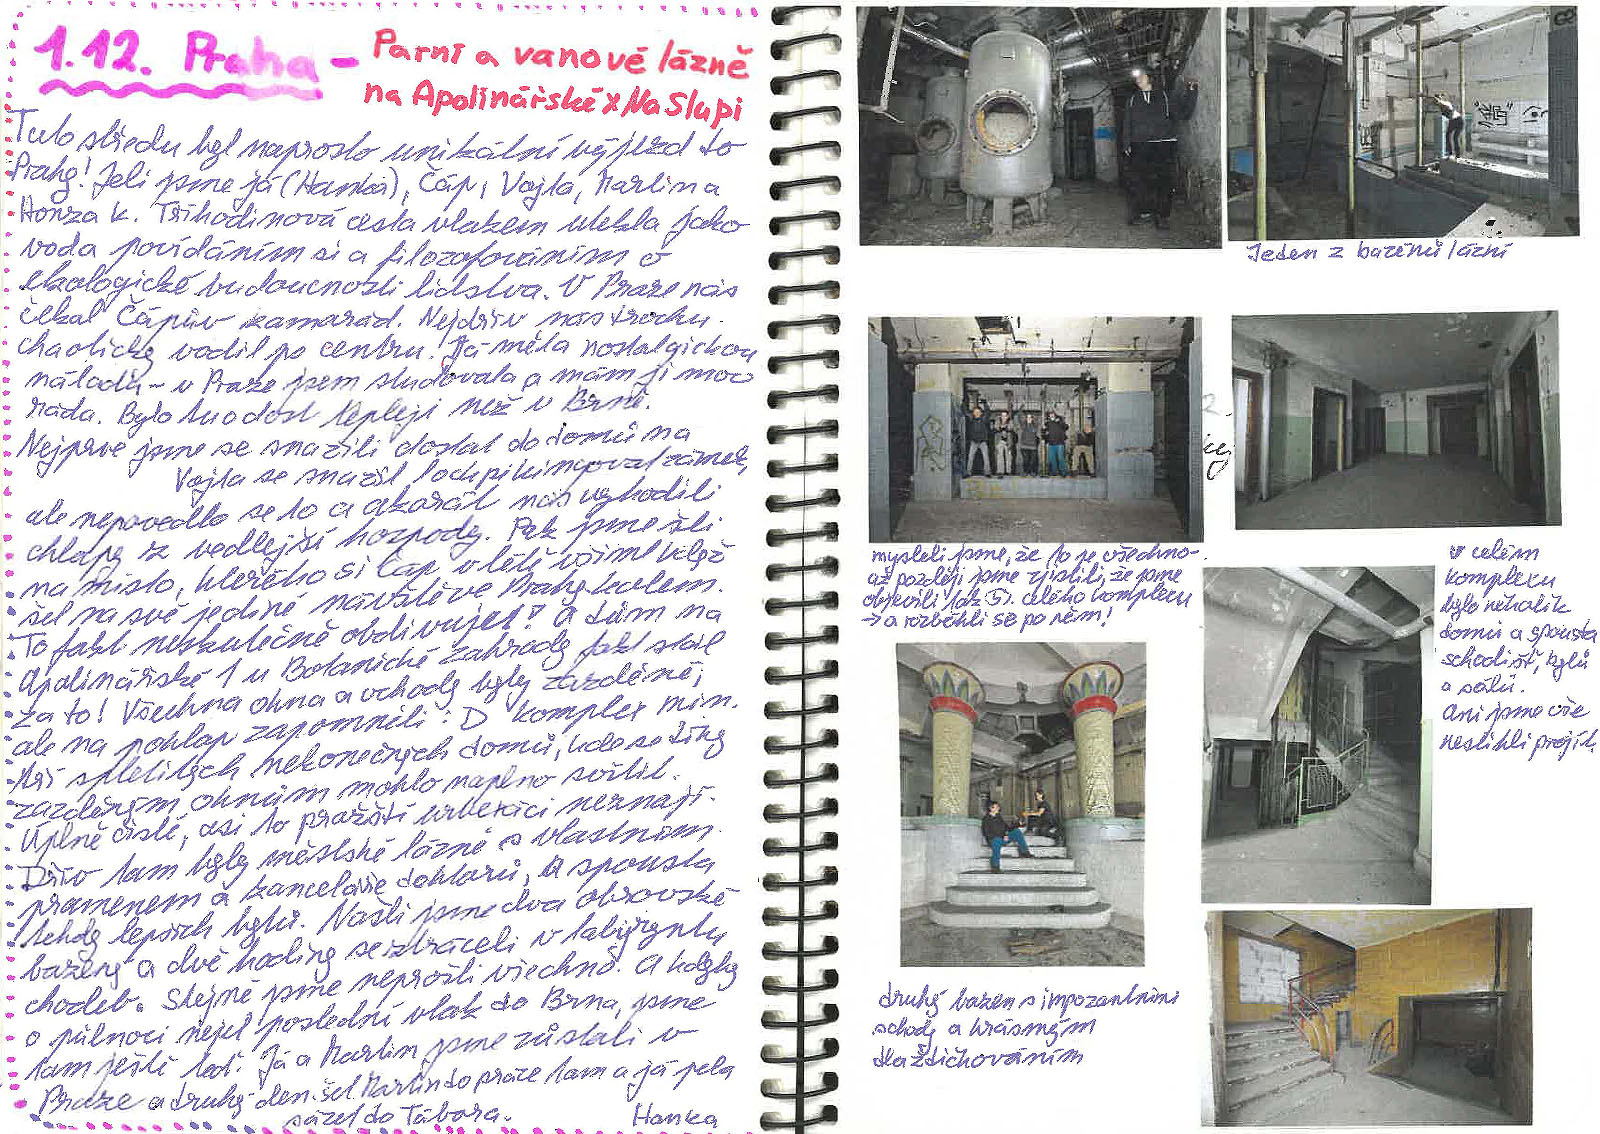 1.12. Praha - Parní a vanové lázně
na Apolinářské x Na Slupi
Tuto středu byl naprosto unikátní výjezd do
Prahy! Jeli jsme já (Hanka), Čáp, Vojta, Martin a
Honza K. Tříhodinová cesta vlakem utekla jako
voda povídáním si a filozofováním o
ekologické budoucnosti lidstva. V Praze nás
čekal Čápův kamarád. Nejdřív nás trochu
chaoticky vodil po centru. Já měla nostalgickou
náladu - v Praze jsem studovala a mám ji moc
ráda. Bylo tu o dost tepleji než v Brně.
Nejprve jsme se snažili dostat do domu na
Vojta se snažil lockpikingovat zámek,
ale nepovedlo se to a akorát nás vyhodili
chlapy z vedlejší hospody. Pak jsme šli
na místo, kterého si Čáp v létě všiml když
šel na své jediné návštěvě Prahy kolem.
To fakt neskutečně obdivuju! A dům na
Apolinářské 1 u Botanické zahrady fakt stál
za to! Všechna okna a vchody byly zazděné,
ale na poklop zapomněli :D Komplex min.
tří spletitých nekonečných domů, kde se díky
zazděným oknům mohlo naplno svítit.
Úplně čisté, asi to pražští urbexíci neznají.
Dřív tam byly městské lázně s vlastním
pramenem a kanceláře doktorů, a spousta
tehdy lepších bytů. Našli jsme dva obrovské
bazény a dvě hodiny se ztráceli v labyrintu
chodeb. Stejně jsme neprošli všechno. A kdyby
o půlnoci nejel poslední vlak do Brna, jsme
tam ještě teď. Já a Martin jsme zůstali v
Praze a druhý den šel Martin do práce tam a já jela
sázet do Tábora. Hanka
Jeden z bazénů lázní
mysleli jsme, že to je všechno -
až později jsme zjistili, že jsme
objevili tak 5% celého komplexu
→ a rozběhli se po něm!
V celém
komplexu
bylo několik
domů a spousta
schodišť, bytů
a sálů.
Ani jsme vše
nestihli projít.
druhý bazén s impozantními
schody a krásným
dlaždičkováním